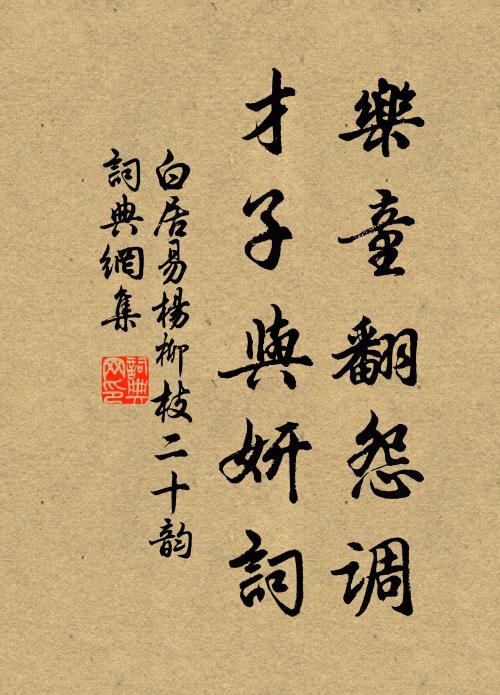 樂童翻怨调
才子與妍詞
白居易楊柳枝二十韵
詞典網集
詞典網印